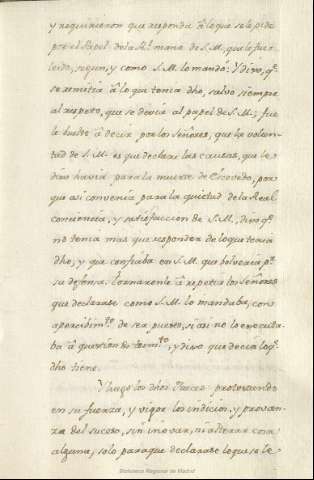 y requirieron que responda â lo que se le pide
por el Papel de la Rl. mano de S.M, que le fue
leido, segun, y como S.M. lo mandò: Y dixo, qe.
se remitia â lo que tenia dho, salvo siempre
al respeto, que se devia al papel de S.M.; fue
le buelto â decir por los Señores, que la volun-
tad de S.M. es que declare las causas, que le
dixo havia para la muerte de Escovedo, por
que asi convenia para la quietud de la Real
conciencia, y satisfaccion de S.M., dixo qe.
no tenia mas que responder de lo que tenia
dho, y que confiaba en S.M. que bolveria pr.
su defensa. Tornaronle â repetir los Señores
que declarase como S.M. lo mandaba, con
apercibimto. de ser puesto, si asi no lo executa-
ba â question de tormto., y dixo que decia lo qe.
dho tiene.
Y luego los dhos Jueces protestando
en su fuerza, y vigor los indicios, y provan-
za del suceso, sin inovar, ni alterar cosa
alguna, solo para que declarase lo que se le
Biblioteca Regional de Madrid